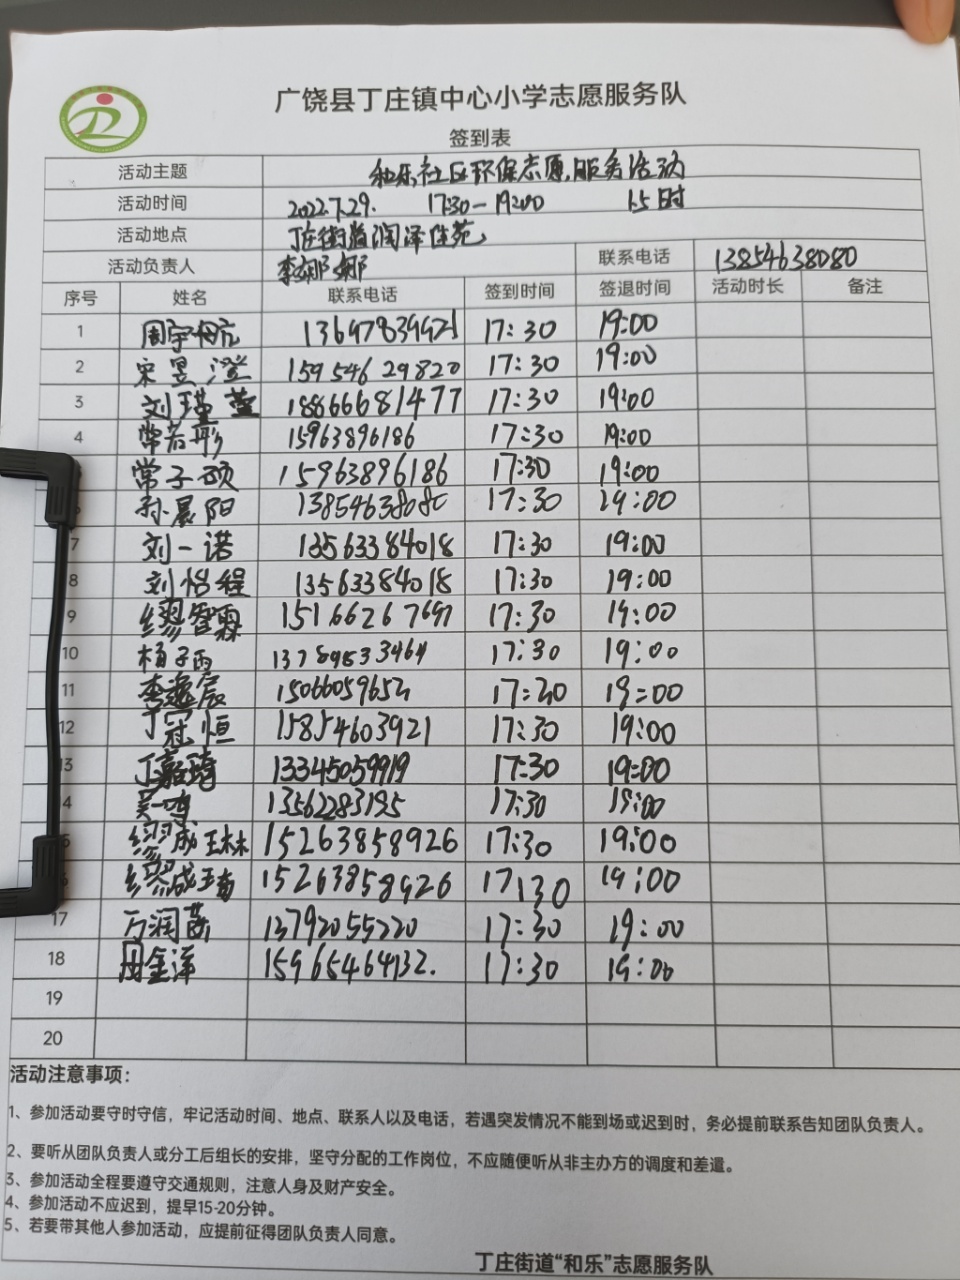 广饶县丁庄镇中心小学志愿服务队
签到表
活动主题 和乐社区环保志愿服务活动
活动时间 2022.7.29. 17:30-19:00 1.5时
活动地点 丁庄街道润泽佳苑
活动负责人 李娜娜 联系电话 13854638080
序号 姓名 联系电话 签到时间 签退时间 活动时长 备注
1 周宇 17:30 19:00
2 宋昱澄 15954629820 17:30 19:00
3 刘瑾萱 18866681477 17:30 19:00
4 常若彤 15963896186 17:30 19:00
常子硕 15963896186 17:30 19:00
孙晨阳 13854638080 17:30 19:00
7 刘一诺 13563384018 17:30 19:00
8 刘恺程 13563384018 17:30 19:00
9 缪智霖 17:30 19:00
10 杨子雨 17:30 19:00
11 李逸辰 15066059652 19:00
12 丁冠恒 15854603921 17:30 19:00
13 丁嘉琦 13345059919 17:30 19:00
吴一鸣 17:30 19:00
缪成琳 15263858926 17:30 19:00
缪成 15263858926 17:30 19:00
17 万润茜 13792055220 17:30 19:00
18 金泽 15965464132. 17:30 19:00
19
20
活动注意事项：
1、参加活动要守时守信，牢记活动时间、地点、联系人以及电话，若遇突发情况不能到场或迟到时，务必提前联系告知团队负责人。
2、要听从团队负责人或分工后组长的安排，坚守分配的工作岗位，不应随便听从非主办方的调度和差遣。
3、参加活动全程要遵守交通规则，注意人身及财产安全。
4、参加活动不应迟到，提早15-20分钟。
5、若要带其他人参加活动，应提前征得团队负责人同意。
丁庄街道“和乐”志愿服务队